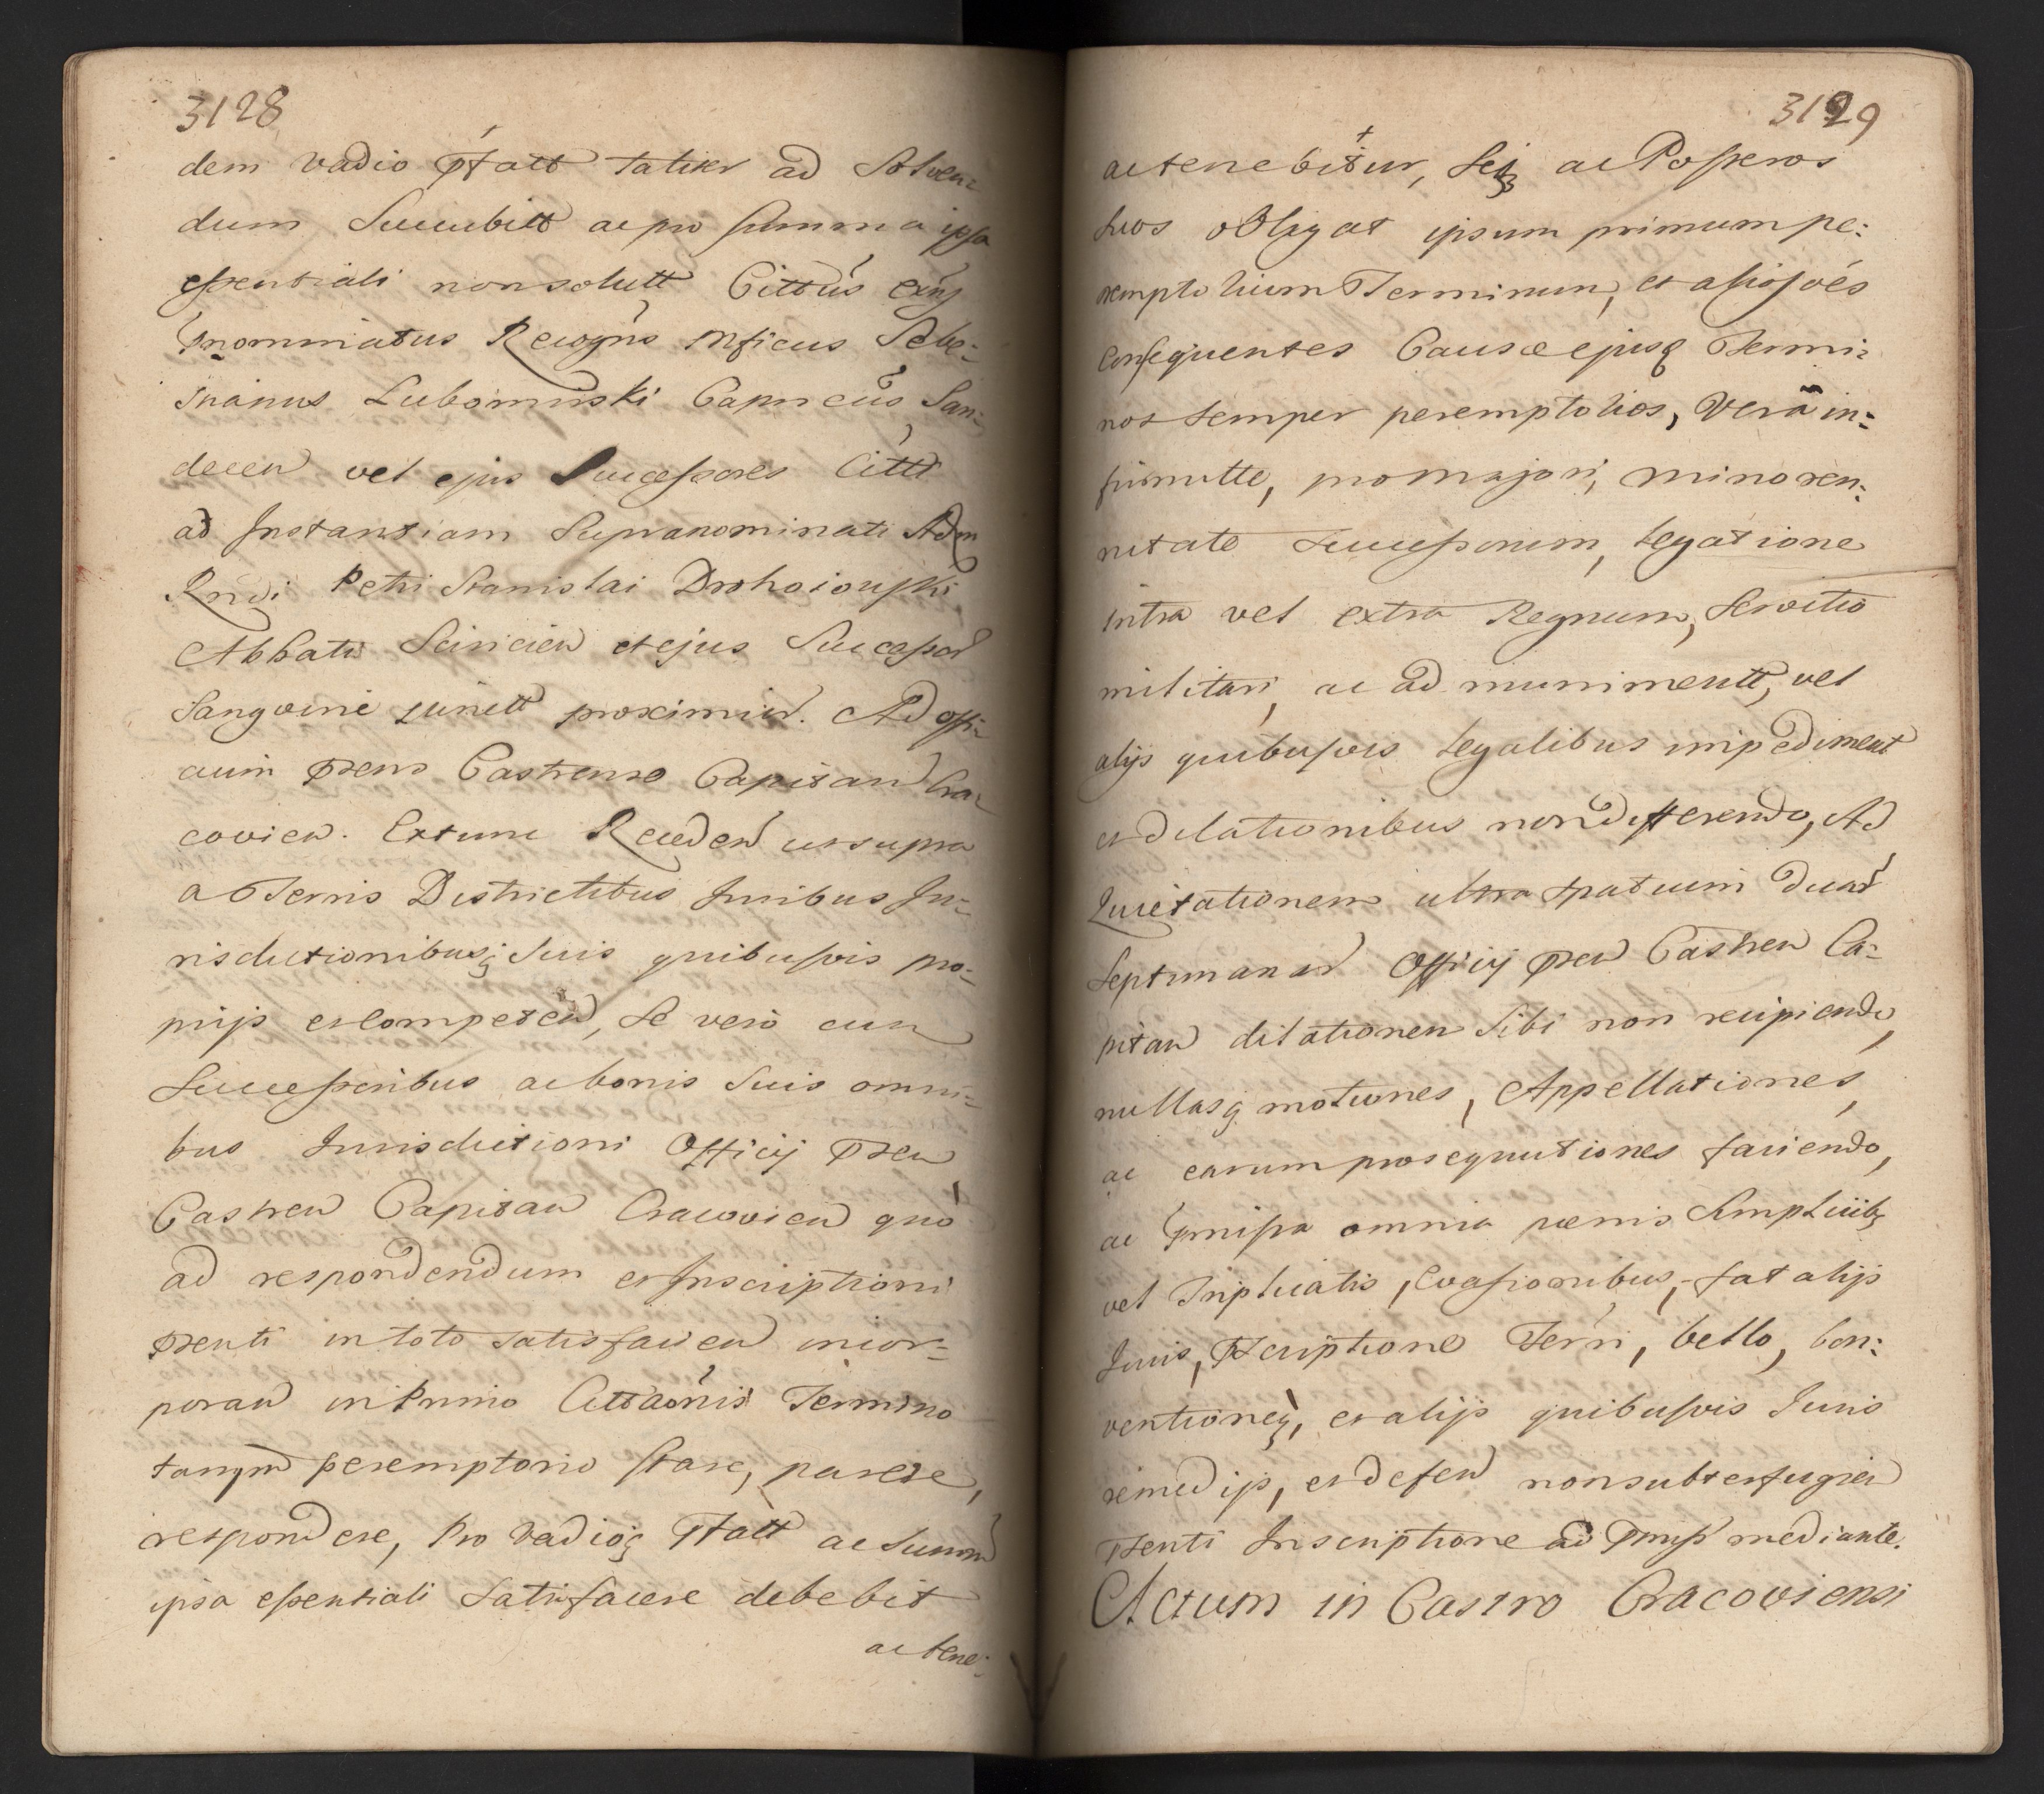 3128
dem vadio pfatt taliter ad Solven=
dum Succubitt ac pro summa ipsa
essentiali non solutt Cittus eius
pnominatus Recogns Mficus Seba=
stianus Lubomirski Capneus San=
decen vel ejus Successores Citti
ad Instantiam Supranominati Adm
Rndi Petri Stanislai Drohoiouski
Abbatis Sciricien et ejus Successor
Sangvine iunctt proximior. Ad offi=
cium pens Castrense Capitan Cra=
covien. Extunc Receden ut supra
a Terris Districtibus Juribus Ju=
risdictionibusq Suis quibusvis pro=
prijs et competen, Se vero cum
Successoribus ac bonis Suis omni=
bus Jurisdictioni Officij psen
Castren Capitan Cracovien quò
ad respondendum et Inscriptioni
psenti in toto satisfacien incor=
poran in Primo Citationis Termino
tanqm peremptorio stare, parere,
respondere, Pro vadioq pfatt ac Summ
ipsa essentiali Satisfacere debebit
ac tene=
3129
ac tenebitur, Seq ac Posteros
Suos obligat ipsum primum pe=
remptorium Terminum, et alios oes
Consequentes Causæ ejusq Termi=
nos semper peremptorios, Verâ in=
firmitte, pro majori, minoren=
nitate Successorum, legatione
intra vel extra Regnum, Servitio
militari, ac ad munimentt, vel
alijs quibusvis legalibus impediment
et dilationibus non differendo, Ad
Quietationem ultra spatium duar
Septimanar Officij psen Castren Ca=
pitan dilationem Sibi non recipiendo,
nullasq motiones, Appellationes,
ac earum prosequutiones faciendo,
ac pmissa omnia pœnis Simplicibq
vel Triplicatis, Evasionibus, fatalijs
Juris, pscriptione Terri, bello, con=
ventioneq, et alijs quibusvis Juris
remedijs, et defen non subterfugien
psenti Inscriptione ad pmiss mediante.
Actum in Castro Cracoviensi